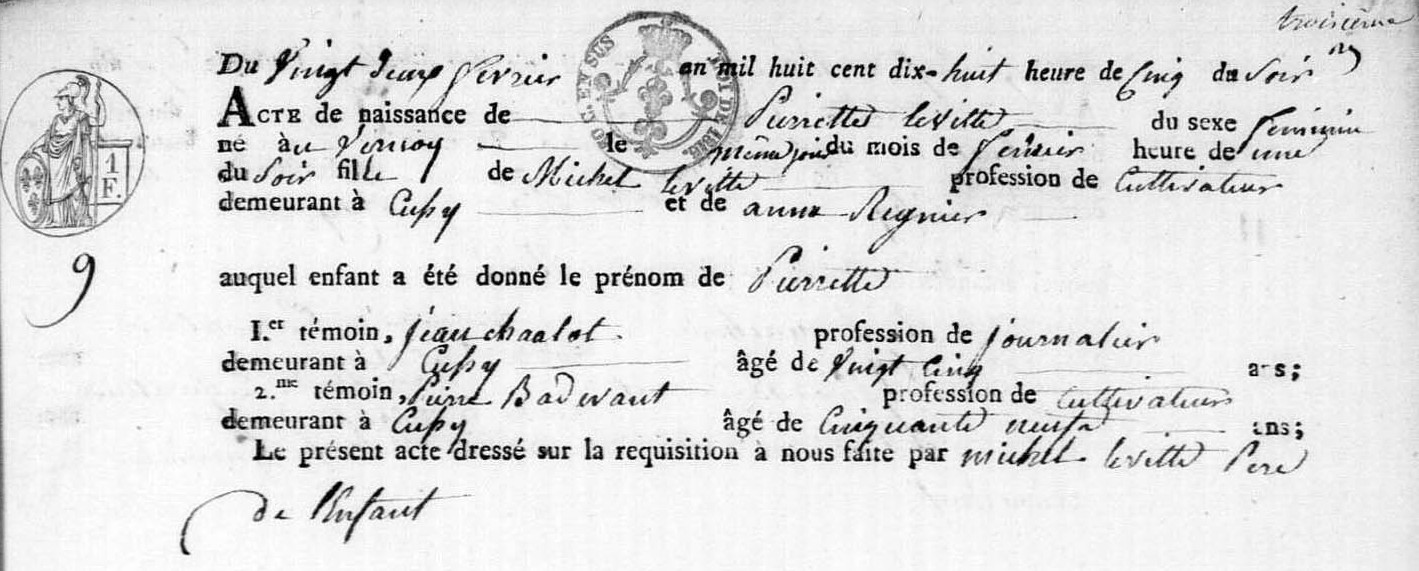 troisième
Du Vingt deux fevrier an mil huit cent dix-huit heure de Cinq du Soir
ACTE de naissance de Pierrette leville du sexe feminin
né à au le même jour du mois de fevrier heure de une
du Soir fille de Michel leville profession de Cultivateur
demeurant à Cussy et de anne Regnier
1 F.
9
auquel enfant a été donné le prénom de Pierrette
I.er témoin, jean chaalot profession de journalier
demeurant à Cussy âgé de Vingt Cinq ans;
2.me témoin, Pierre Badevant profession de Cultivateur
demeurant à Cussy âgé de Cinquante neuf ans;
Le présent acte dressé sur la requisition à nous faite par michel leville Pere
de l'Enfant